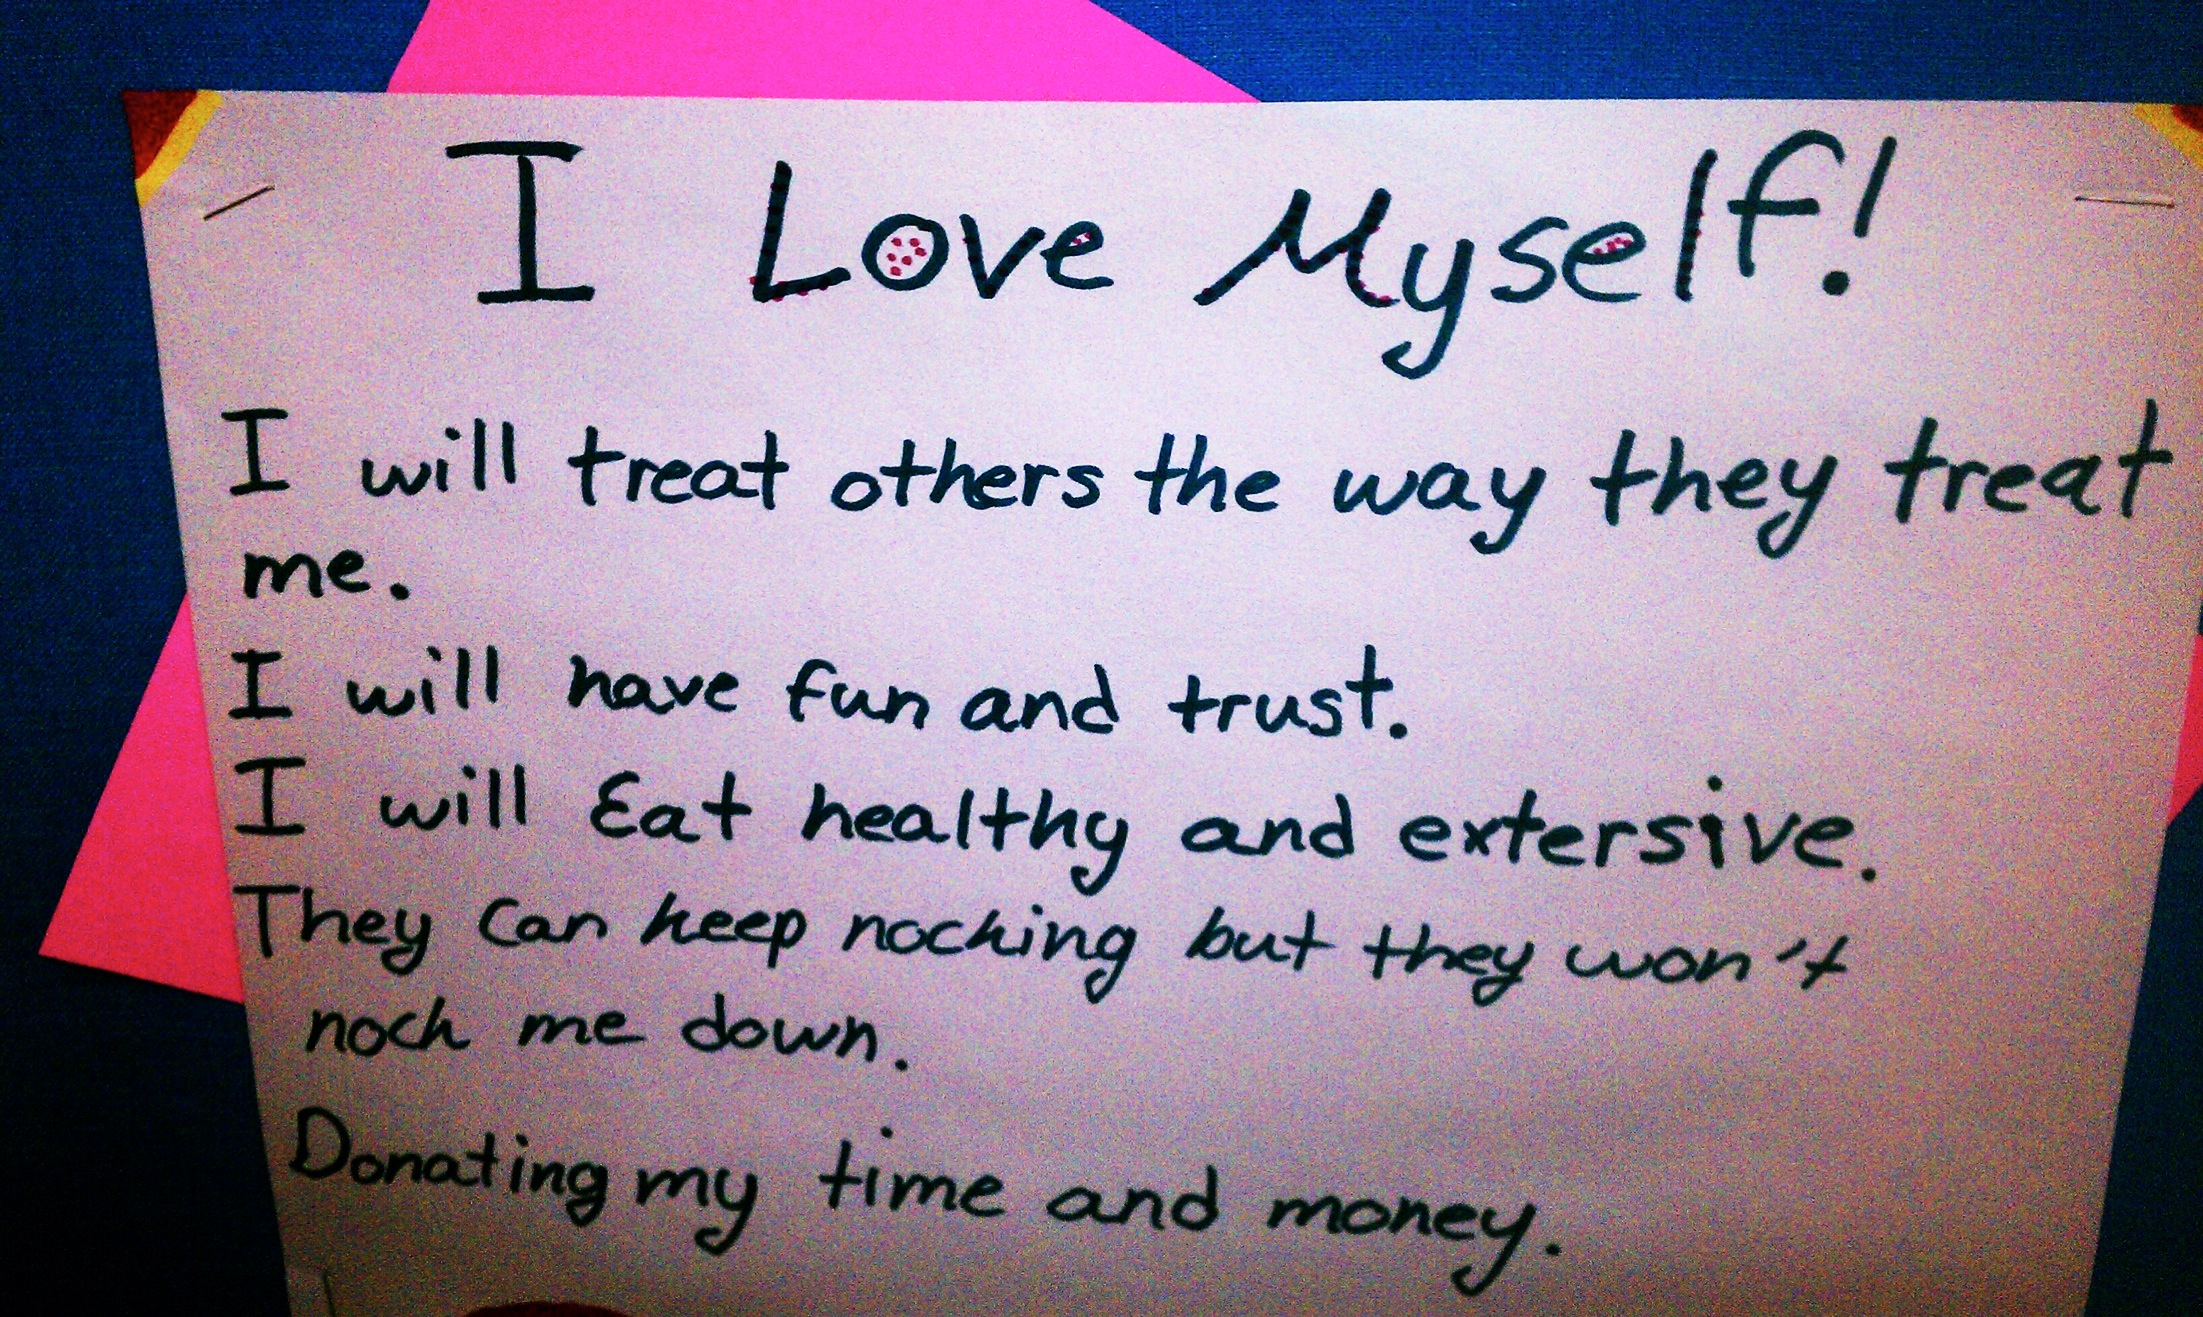 I Love Myself!
I will treat others the way they treat
me.
I will have fun and trust.
I will Eat healthy and extersive.
They can keep nocking but they won't
nock me down.
Donating my time and money.